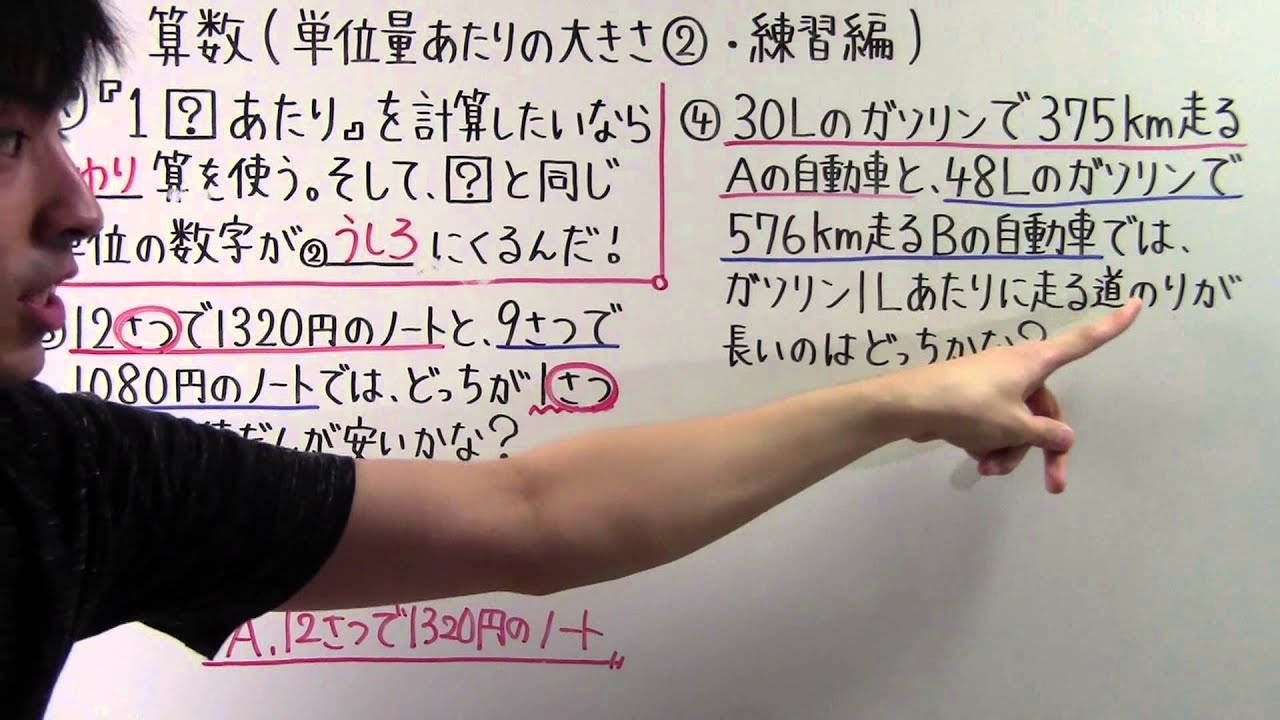 算数(単位量あたりの大きさ②・練習編)
『1?あたり』を計算したいなら
わり算を使う。そして、?と同じ
単位の数字が②うしろにくるんだ!
12さつで1320円のノートと、9さつで
1080円のノートでは、どっちが1さつ
が安いかな?
A.12さつで1320円のノート
④30Lのガソリンで375km走る
Aの自動車と、48Lのガソリンで
576km走るBの自動車では、
ガソリン1Lあたりに走る道のりが
長いのはどっちかな?